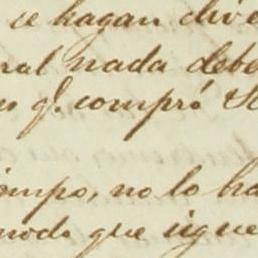 se hagan dive
ral nada debe
os qe. compró
iempo, no lo ha
modo que sigue